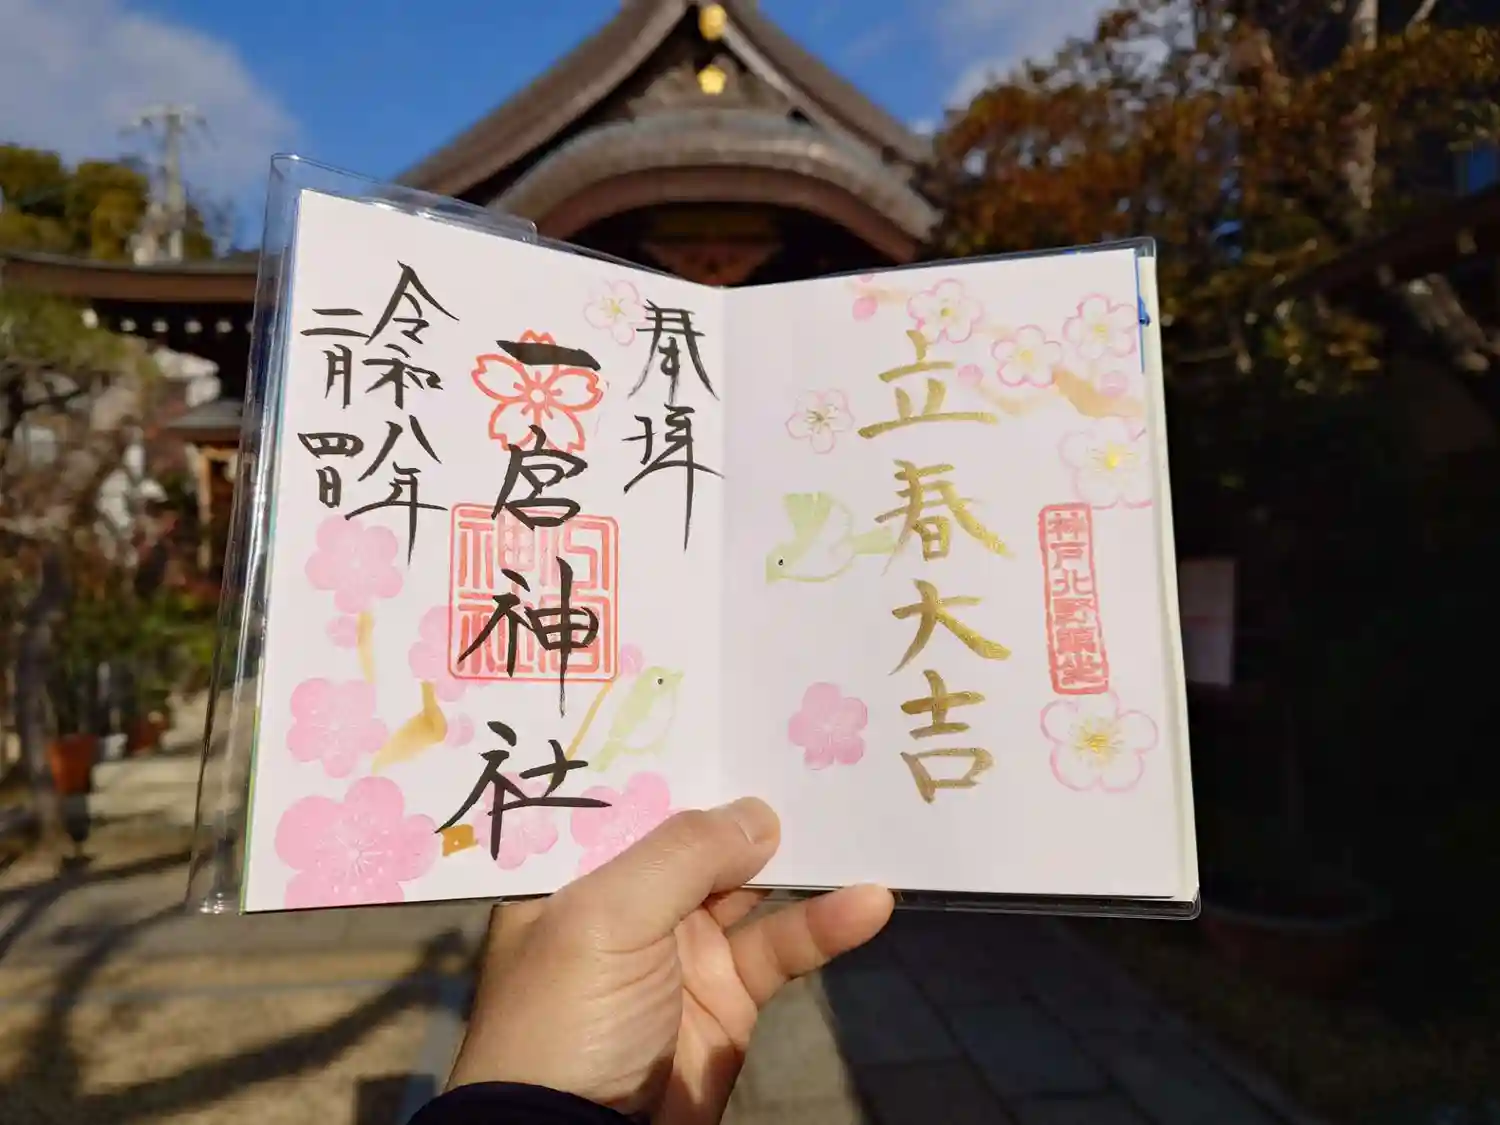 立春大吉
神戸北野鎮坐
奉拝
一宮神社
令和八年
二月四日